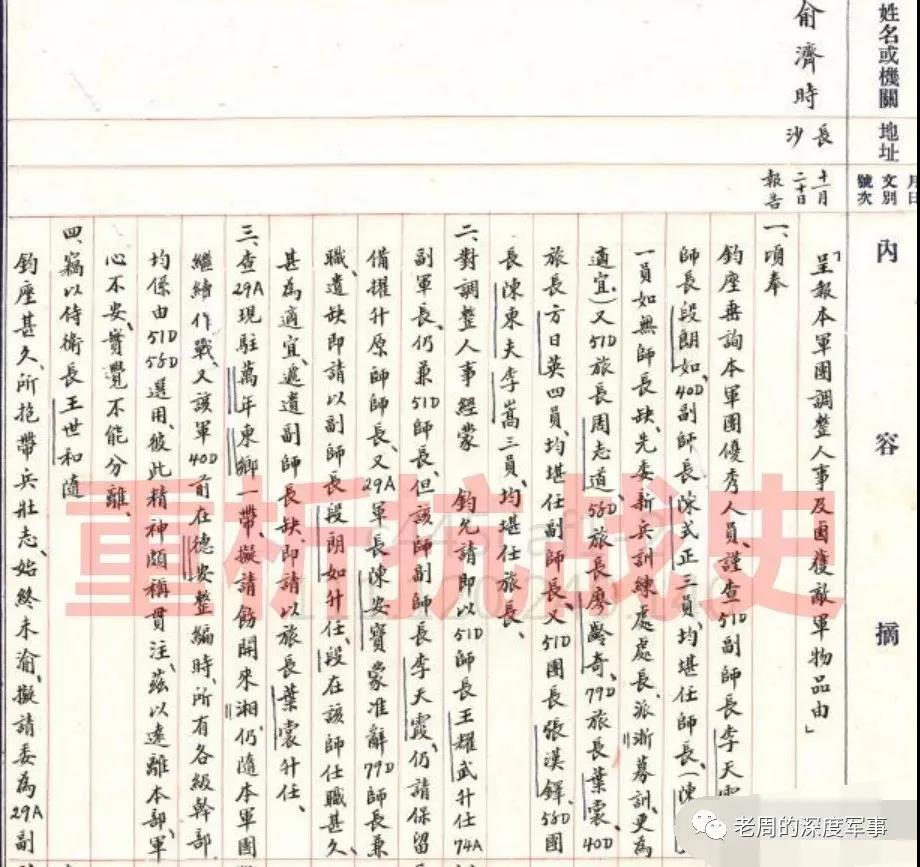 姓名或機關
地址
月日
文別
號次
內容摘
俞濟時
長沙
十一月
二十日
報告
「呈報本軍團調整人事及鹵獲敵軍物品由」
一、頃奉
鈞座垂詢本軍團優秀人員、謹查51D副師長李天
師長段朗如、40D副師長陳式正三員、均堪任師長、(陳
一員如無師長缺、先委新兵訓練處處長、派浙募訓、更為
適宜)又51D旅長周志道、58D旅長廖齡奇、79D旅長葉裳、40D
旅長方日英四員、均堪任副師長、又51D團長張漢鐸、58D團
長陳東夫李嵩三員、均堪任旅長、
二、對調整人事經蒙 鈞允請即以51D師長王耀武升任74A
副軍長、仍兼51D師長、但該師副師長李天霞、仍請保留
備擢升原師長、又29A軍長陳安寶蒙准辭79D師長兼
職、遺缺即請以副師長段朗如升任、段在該師任職甚久、
甚為適宜、遞遺副師長缺即請以旅長葉裳升任、
三、查29A現駐萬年東鄉一帶、擬請飭開來湘、仍隨本軍團
繼續作戰、又該軍40D前在德安整編時、所有各級幹部、
均係由51D58D選用、彼此精神頗稱貫注、茲以遠離本部、軍
心不安、實覺不能分離、
四、竊以侍衛長王世和隨
鈞座甚久、所抱帶兵壯志、始終未渝、擬請委為29A副
重析抗战史
老周的深度军事